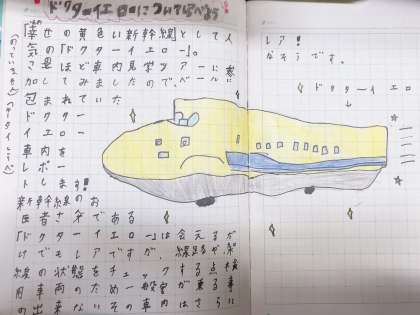 ドクターイエローについて調べよう
「幸せの黄色い新幹線」として人
気の「ドクターイエロー」。
このほど車内見学ツアーに参
加してみましたので、ベールに
包まれていた
ドクター
イエロー
車内を
レポー
トします!
新幹線のお
医者さんである
「ドクターイエロー」は会えるだ
けでもレアですが、線路や
線の状態をチェックする点検
用車両のため一般客が乗る事
の出来ないその車内はさらに
レア!
なそうです。
ドクターイエロー